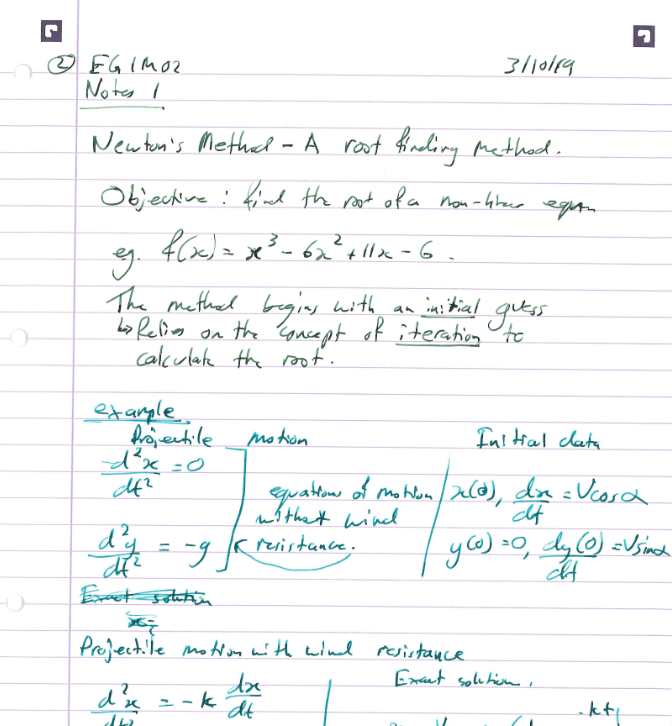 ② EG1M02 3/10/19
Notes 1
Newton's Method - A root finding Method.
Objective : find the root of a non-linear eqn
eg. f(x) = x³ - 6x² + 11x - 6 .
The method begins with an initial guess
↳ Relies on the concept of iteration to
calculate the root.
example
Projectile Motion Initial data
d²x/dt² = 0
equations of motion without wind resistance.
x(0), dx/dt = Vcosα
d²y/dt² = -g
y(0) = 0, dy(0)/dt = Vsinα
Exact solution
x =
Projectile motion with wind resistance
Exact solution.
d²x/dt² = -k dx/dt